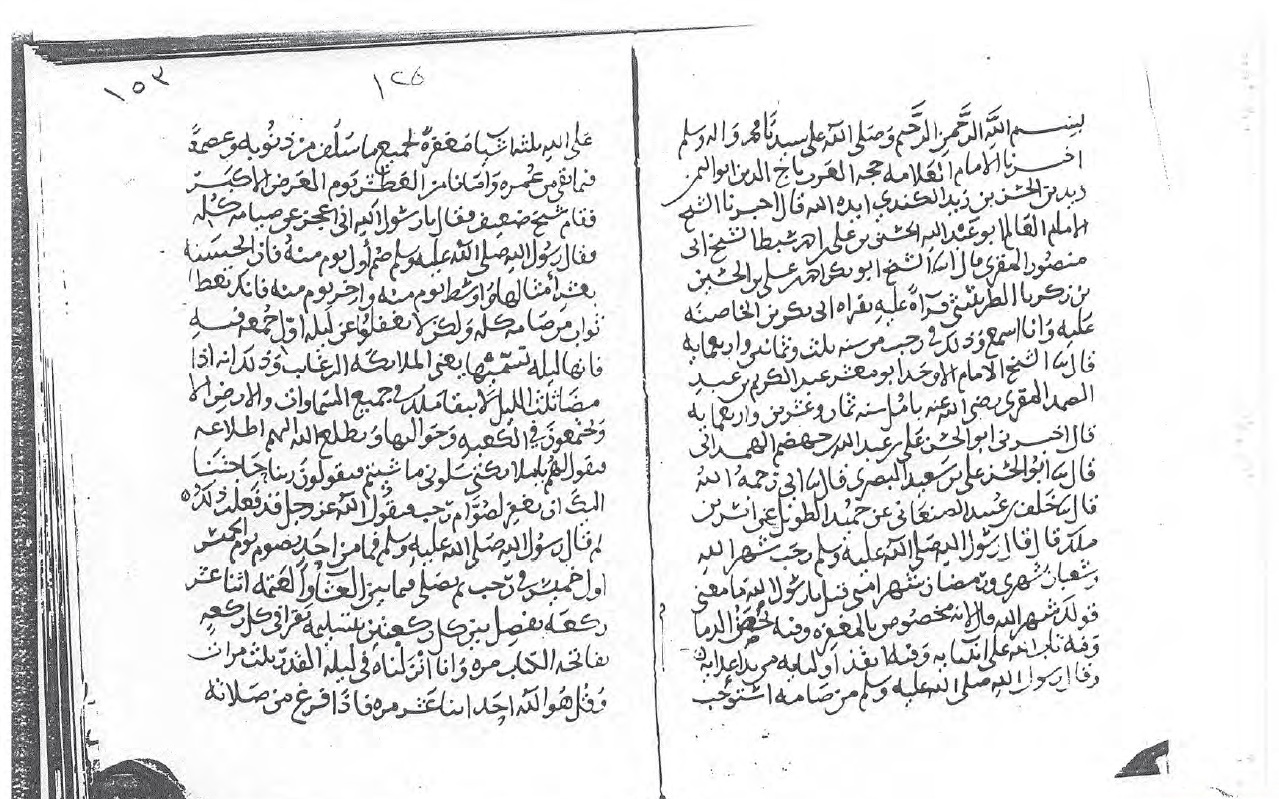 بسم الله الرحمن الرحيم وصلى الله على سيدنا محمد واله وسلم
اخبرنا الامام العلامه حجه العرب تاج الدين ابو اليمن
زيد بن الحسن بن زيد الكندي ايده الله قال اخبرنا الشيخ
الامام العالم ابو عبد الله الحسين بن علي بن احمد سبط الشيخ ابى
منصور المقري قال انبا الشيخ ابو بكر احمد بن علي بن الحسين
بن زكريا الطريثيثي قرآة عليه بقراة ابى بكر بن الخاضبه
عليه وانا اسمع وذلك في رجب من سنه ثلث وثمانين واربعمايه
قال ثنا الشيخ الامام الاوحد ابو معشر عبد الكريم بن عبد
الصمد المقري رضي الله عنه بامل سنه ثمان وعشرين واربعمايه
قال اخبرنى ابو الحسن علي بن عبد الله بن جهضم الهمدانى
قال ثنا ابو الحسن علي بن سعيد البصرى قال ثنا ابى رحمه الله
قال ثنا خلف بن عبيد الصنعانى عن حميد الطويل عن انس بن
ملك قال قال رسول الله صلى الله عليه وسلم رجب شهر الله
وشعبان شهري ورمضان شهر امتى قيل يارسول الله ما معنى
قولك شهر الله قال لانه مخصوص بالمغفره وفيه تحقن الدما
وفيه تاب الله على انبيايه وفيه انقذ اوليايه من يد اعدايه
وقال رسول الله صلى الله عليه وسلم من صامه استوجب
١٥٣
١٢٥
على الله ثلثه اشيا مغفرة لجميع ما سلف من ذنوبه وعصمة
فيما بقى من عمره وامانا من العطش يوم العرض الاكبر
فقام شيخ ضعيف فقال يارسول الله انى اعجز عن صيامه كله
فقال رسول الله صلى الله عليه وسلم صم أول يوم منه فان الحسنه
بعشر أمثالها واوسط يوم منه واخر يوم منه فانك تعطا
ثواب من صامه كله ولكن لا تغفلوا عن ليله اول جمعه فيه
فانها ليله تسميها يعنى الملائكة الرغائب وذلك انه اذا
مضا ثلث الليل لا يبقا ملك في جميع السماوات والارض الا
ويجتمعون في الكعبه وحواليها ويطلع الله اليهم اطلاعه
فيقول لهم ياملائكتى سلونى ما شيتم فيقولون ربنا حاجتنا
اليك ان تغفر لصوام رجب فيقول الله عز وجل قد فعلت ذلك
ثم قال رسول الله صلى الله عليه وسلم فما من احد يصوم يوم الخميس
اول خميس في رجب ثم يصلي فيما بين العشا والعتمه اثنا عشر
ركعة يفصل بين كل ركعتين بتسليمه يقرا في كل ركعه
بفاتحه الكتاب مره وانا انزلناه في ليله القدر ثلث مرات
وقل هو الله احد اثنا عشر مره فاذا فرغ من صلاته